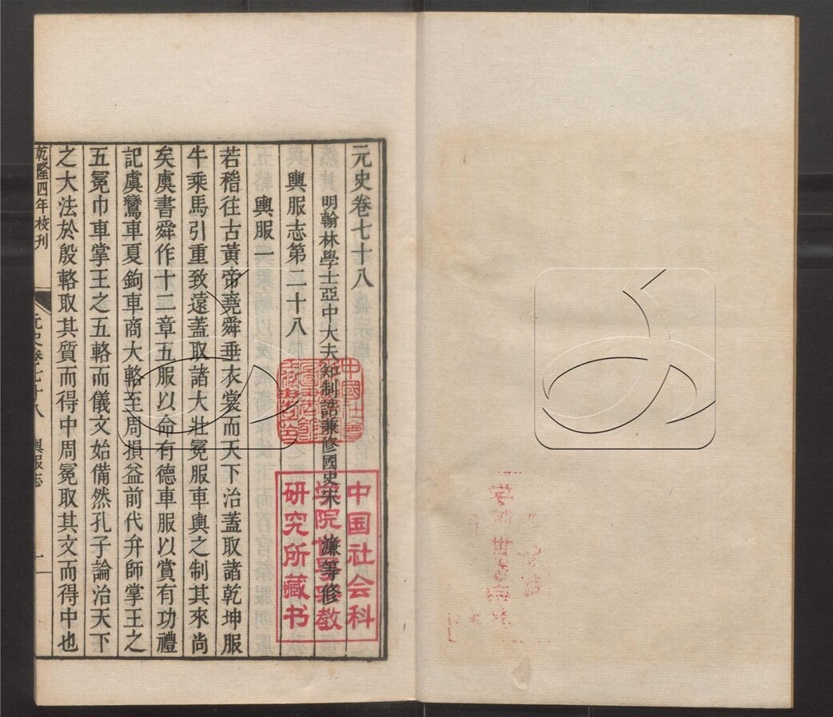 元史卷七十八
明翰林學士亞中大夫知制誥兼修國史宋 濂等修
輿服志第二十八
輿服一
若稽往古黃帝堯舜垂衣裳而天下治蓋取諸乾坤服
牛乘馬引重致遠蓋取諸大壯冕服車輿之制其來尚
矣虞書舜作十二章五服以命有德車服以賞有功禮
記虞鸞車夏鉤車商大輅至周損益前代弁師掌王之
五冕巾車掌王之五輅而儀文始備然孔子論治天下
之大法於殷輅取其質而得中周冕取其文而得中也
乾隆四年校刊
元史卷七十八 輿服志 一
中国社会科
学院世界宗教
研究所藏书